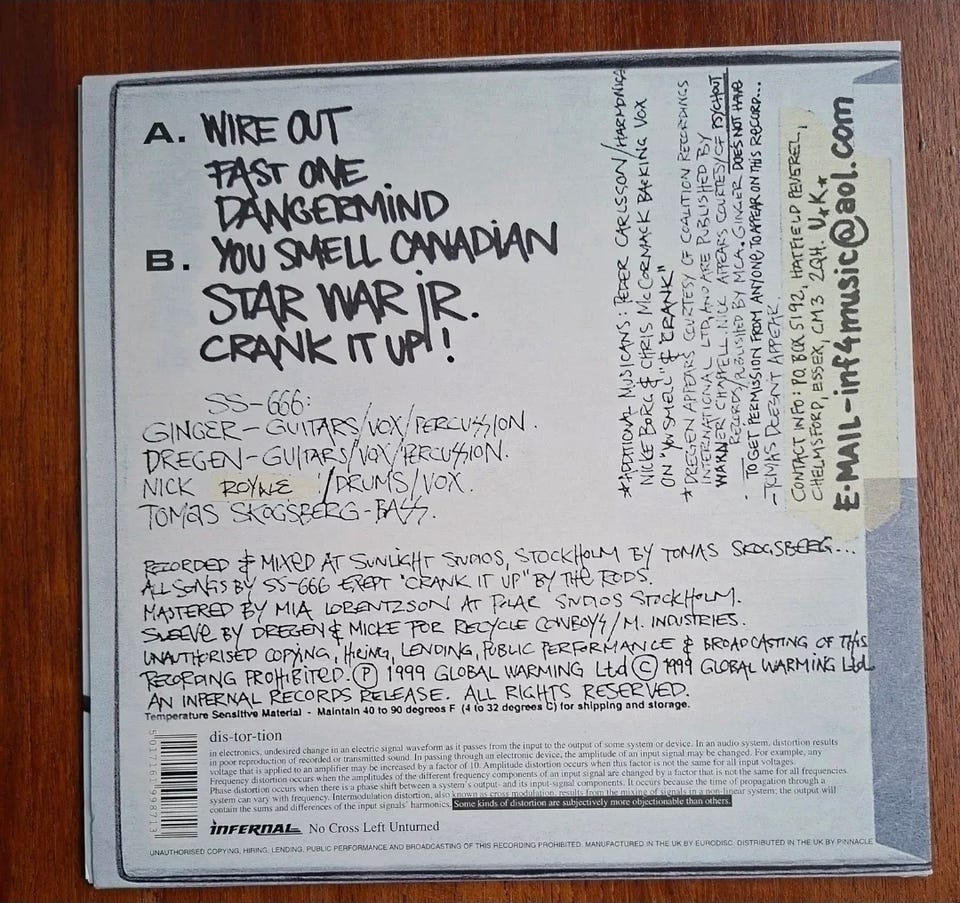 A. WIRE OUT
FAST ONE
DANGERMIND
B. YOU SMELL CANADIAN
STAR WAR JR.
CRANK IT UP!!
SS-666:
GINGER - GUITARS/VOX/PERCUSSION.
DREGEN - GUITARS/VOX/PERCUSSION.
NICK ROYNE / DRUMS/VOX.
TOMAS SKOGSBERG - BASS.
RECORDED & MIXED AT SUNLIGHT STUDIOS, STOCKHOLM BY TOMAS SKOGSBERG...
ALL SONGS BY SS-666 EXEPT "CRANK IT UP" BY THE RODS.
MASTERED BY MIA LORENTZSON AT POLAR STUDIOS STOCKHOLM.
SLEEVE BY DREGEN & MICKE FOR RECYCLE COWBOYS/M. INDUSTRIES.
UNAUTHORISED COPYING, HIRING, LENDING, PUBLIC PERFORMANCE & BROADCASTING OF THIS
RECORDING PROHIBITED. Ⓟ 1999 GLOBAL WARMING Ltd © 1999 GLOBAL WARMING Ltd.
AN INFERNAL RECORDS RELEASE. ALL RIGHTS RESERVED.
Temperature Sensitive Material - Maintain 40 to 90 degrees F (4 to 32 degrees C) for shipping and storage.
*ADDITIONAL MUSICANS: PEDER CARLSSON/HARMONICA
NICKE BORG & CHRIS McCORMACK BACKING VOX
ON "YOU SMELL" & "CRANK"
*DREGEN APPEARS COURTESY OF COALITION RECORDINGS
INTERNATIONAL LTD, AND ARE PUBLISHED BY
WARNER CHAPELL. NICK APPEARS COURTESY OF PSYCHOUT
RECORDS/PUBLISHED BY MCA. GINGER DOES NOT HAVE
TO GET PERMISSION FROM ANYONE TO APPEAR ON THIS RECORD...
- TOMAS DOESN'T APPEAR.
CONTACT INFO: PO BOX 5192, HATFIELD PEVEREL,
CHELMSFORD, ESSEX, CM3 2QH. U*K*
E-MAIL-inf4music@aol.com
dis-tor-tion
in electronics, undesired change in an electric signal waveform as it passes from the input to the output of some system or device. In an audio system, distortion results
in poor reproduction of recorded or transmitted sound. In passing through an electronic device, the amplitude of an input signal may be changed. For example, any
voltage that is applied to an amplifier may be increased by a factor of 10. Amplitude distortion occurs when this factor is not the same for all input voltages.
Frequency distortion occurs when the amplitudes of the different frequency components of an input signal are changed by a factor that is not the same for all frequencies.
Phase distortion occurs when there is a phase shift between a system's output- and its input-signal components. It occurs because the time of propagation through a
system can vary with frequency. Intermodulation distortion, also known as cross modulation, results from the mixing of signals in a non-linear system; the output will
contain the sums and differences of the input signals' harmonics. Some kinds of distortion are subjectively more objectionable than others.
INFERNAL No Cross Left Unturned
UNAUTHORISED COPYING, HIRING, LENDING, PUBLIC PERFORMANCE AND BROADCASTING OF THIS RECORDING PROHIBITED. MANUFACTURED IN THE UK BY EURODISC. DISTRIBUTED IN THE UK BY PINNACLE